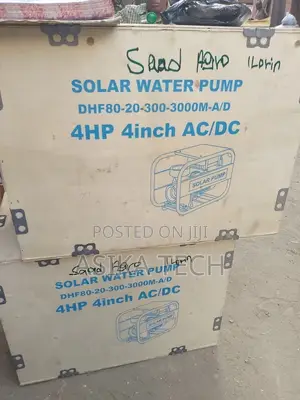 Saad Agro Ilorin
SOLAR WATER PUMP
DHF80-20-300-3000M-A/D
4HP 4inch AC/DC
SOLAR PUMP
POSTED ON JIJI
ASIKA TECH
Saad Agro Ilorin
SOLAR WATER PUMP
DHF80-20-300-3000M-A/D
4HP 4inch AC/DC